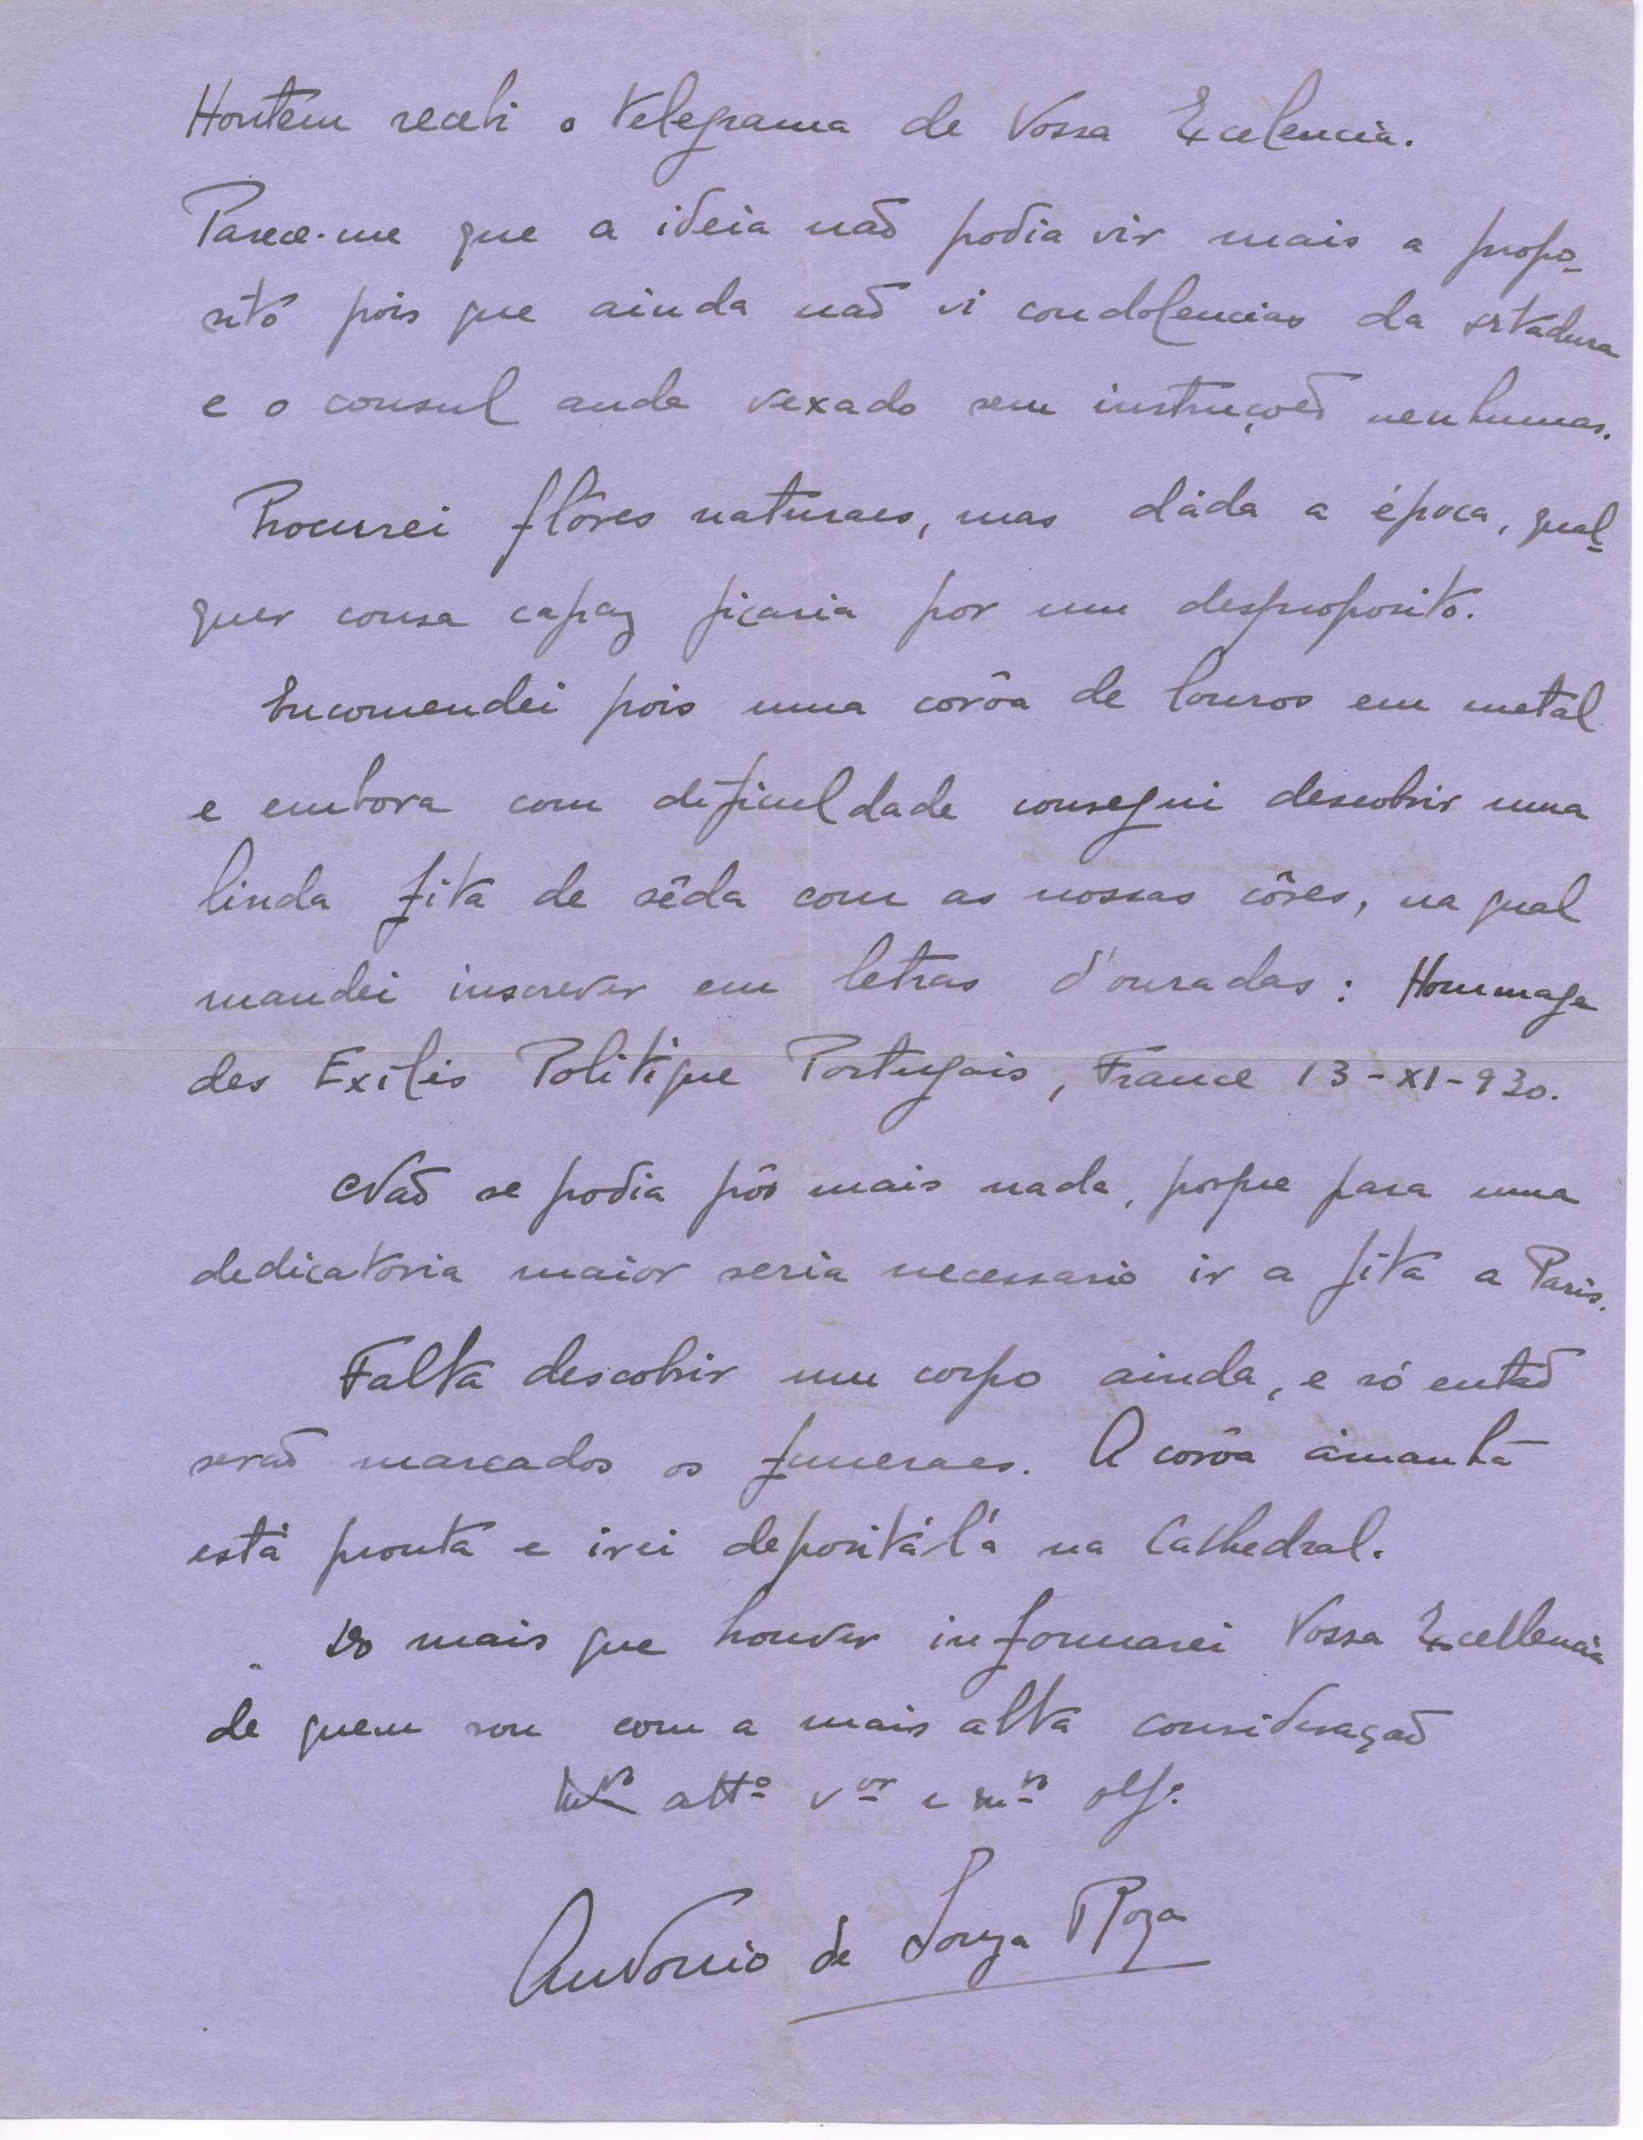 Hontem recebi o telegrama de Vossa Excelencia.
Parece-me que a ideia não podia vir mais a propo-
sito pois que ainda não vi condolencias da
e o consul anda vexado sem instruções nenhumas.
Procurei flôres naturaes, mas dáda a época, qual-
quer cousa capaz ficaria por um desproposito.
Encomendei pois uma corôa de louros em metal
e embora com dificuldade consegui descobrir uma
linda fita de sêda com as nossas côres, na qual
mandei inscrever em letras d'ouradas: Hommage
des Exilés Politique Portugais, France 13-XI-930.
Não se podia pôr mais nada, porque para uma
dedicatoria maior seria necessario ir a fita a Paris.
Falta descobrir um corpo ainda, e só então
serão marcados os funeraes. A corôa ámanhã
está pronta e irei depositál'a na Cathedral.
Do mais que houver informarei Vossa Excellencia
de quem sou com a mais alta consideração
attº vor e mto
Antonio de Souza Roza